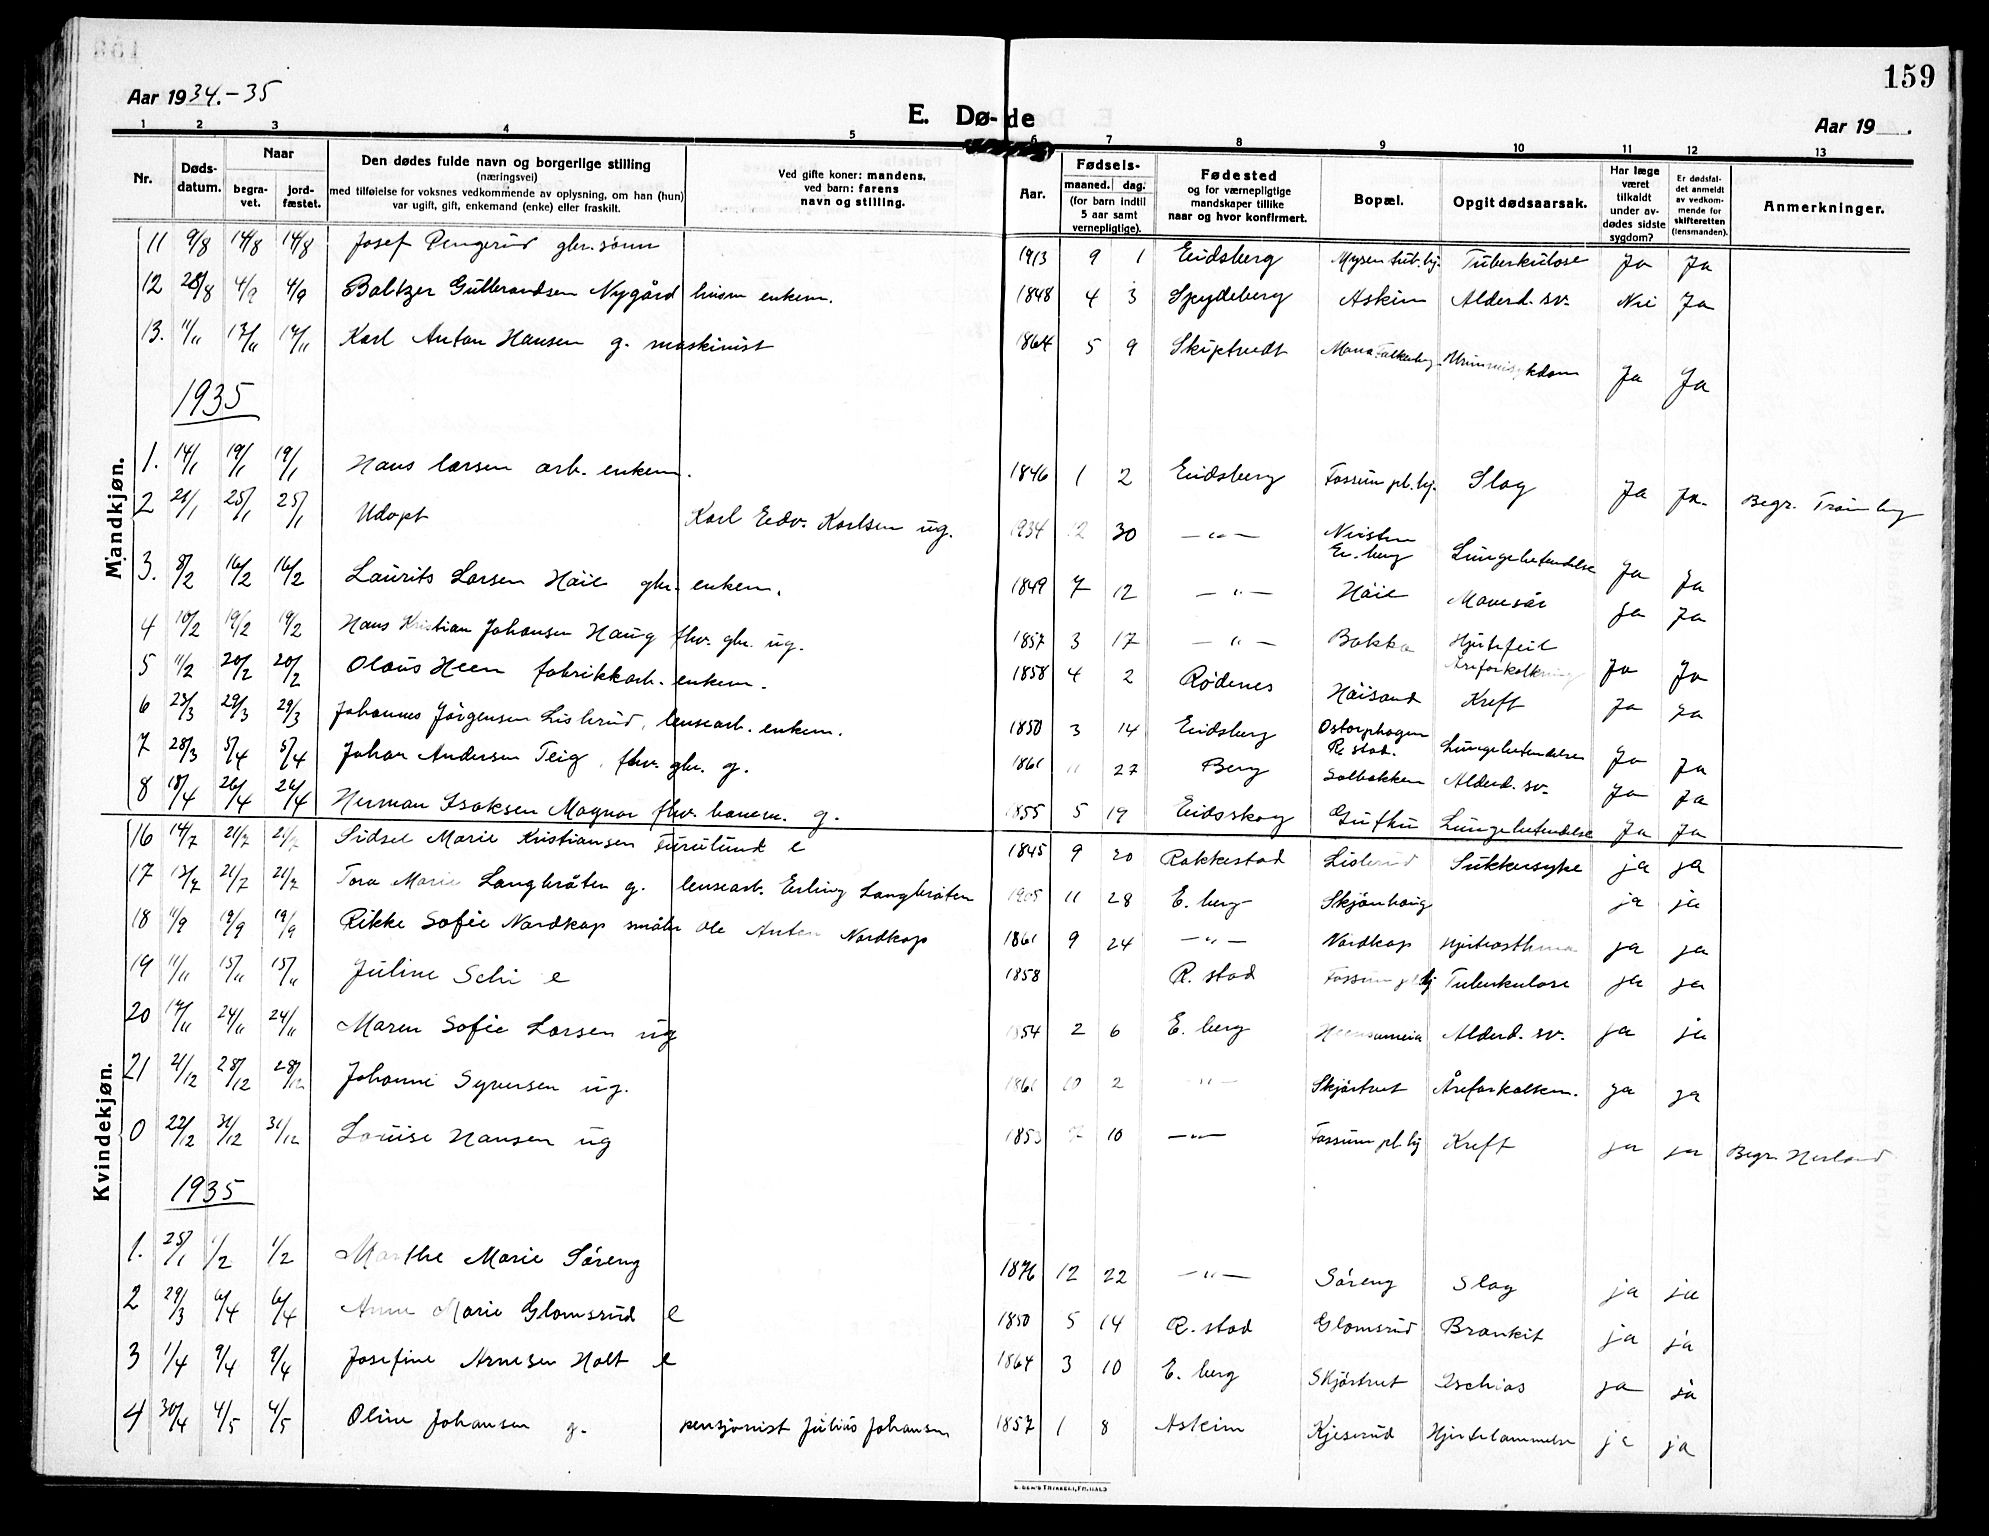 159
Aar 1934.-35
E. Dø-de
Aar 19 .
1 2 3 4 5 6 7 8 9 10 11 12 13
Nr.
Døds-datum.
Naar
begra-vet.
jord-fæstet.
Den dødes fulde navn og borgerlige stilling
(næringsvei)
med tilføielse for voksnes vedkommende av oplysning, om han (hun)
var ugift, gift, enkemand (enke) eller fraskilt.
Ved gifte koner: mandens,
ved barn: farens
navn og stilling.
Aar.
Fødsels-
maaned. dag.
(for barn indtil
5 aar samt
vernepligtige).
Fødested
og for værnepligtige
mandskaper tillike
naar og hvor konfirmert.
Bopæl.
Opgit dødsaarsak.
Har læge
været
tilkaldt
under av-
dødes sidste
sygdom?
Er dødsfal-
det anmeldt
av vedkom-
mende for
skifteretten
(lensmanden).
Anmerkninger.
Mandkjøn.
11 9/8 14/8 14/8 Josef Pengerud gbr.sønn 1913 9 1 Eidsberg Mysen tub.hj. Tuberkulose Ja Ja
12 28/8 4/9 4/9 Baltzer Gulbrandsen Nygård husm enkem. 1848 4 3 Spydeberg Askim Alderd. sv. Nei Ja
13. 11/11 17/11 17/11 Karl Anton Hansen g. maskinist 1864 5 9 Skiptvedt Mona Ja Ja
1935
1. 14/1 19/1 19/1 Hans Larsen arb. enkem. 1846 1 2 Eidsberg Fossum pl.hj. Slag Ja Ja. Begr. Trømborg
2 21/1 25/1 25/1 Udøpt Karl Edv. Karlsen ug. 1934 12 30 —"— E.berg Lungebetendelse Ja Ja
3. 8/2 16/2 16/2 Laurits Larsen Håie gbr. enkem. 1849 7 12 —"— Håie Mavesår Ja Ja
4 10/2 19/2 19/2 Hans Kristian Johansen Haug fhv. gbr. ug. 1857 3 17 —"— Bakka Hjertefeil Ja Ja
5 11/2 20/2 20/2 Olaus Heen fabrikkarb. enkem. 1858 4 2 Rødenes Håisand Åreforkalkning Kreft Ja Ja
6 23/3 29/3 29/3 Johannes Jørgensen Lislerud, lensearb. enkem. 1850 3 14 Eidsberg R.stad. Lungebetendelse Ja Ja
7 28/3 5/4 5/4 Johan Andersen Teig, fhv. gbr. g. 1861 11 27 Berg Solbakken Alderd. sv. Ja Ja
8 18/4 26/4 26/4 Herman Isaksen Magnor fhv. banem. g. 1855 5 19 Eidsskog Guthu Lungebetendelse Ja Ja
Kvindekjøn.
16 14/7 21/7 21/7 Sidsel Marie Kristiansen Furulund e 1845 9 20 Rakkestad Lislerud Sukkersyke ja ja
17 13/7 21/7 21/7 Tora Marie Langbråten g. lensearb. Erling Langbråten 1905 11 28 E. berg Skjønhaug ja ja
18 11/9 19/9 19/9 Rikke Sofie Nordkap småbr Ole Anton Nordkap 1861 9 24 —"— Nordkap Hjerteasthma ja ja
19 11/11 15/11 15/11 Juline Schi e 1858 R. stad Fossum pl.hj Tuberkulose ja ja
20 17/11 24/11 24/11 Maren Sofie Larsen ug 1854 2 6 E. berg Alderd. sv. ja ja
21 21/12 28/12 28/12 Johanne Syversen ug. 1861 10 2 "— Skjørtvet Åreforkalkn. ja ja
0 22/12 31/12 31/12 Louise Hansen ug 1853 7 10 —"— Fossum pl.hj Kreft ja ja Begr. Herland
1935
1. 25/1 1/2 1/2 Marthe Marie Søreng 1876 12 22 —"— Søreng Slag ja ja
2 29/3 6/4 6/4 Anne Marie Glomsrud e 1850 5 14 R. stad Glomsrud Bronkit ja ja
3 1/4 9/4 9/4 Josefine Arnesen Holt e 1864 3 10 E. berg Skjørtvet Ischias ja ja
4 30/4 4/5 4/5 Oline Johansen g. pensjonist Julius Johansen 1857 1 8 Askim Kjeserud Hjertelammelse ja ja